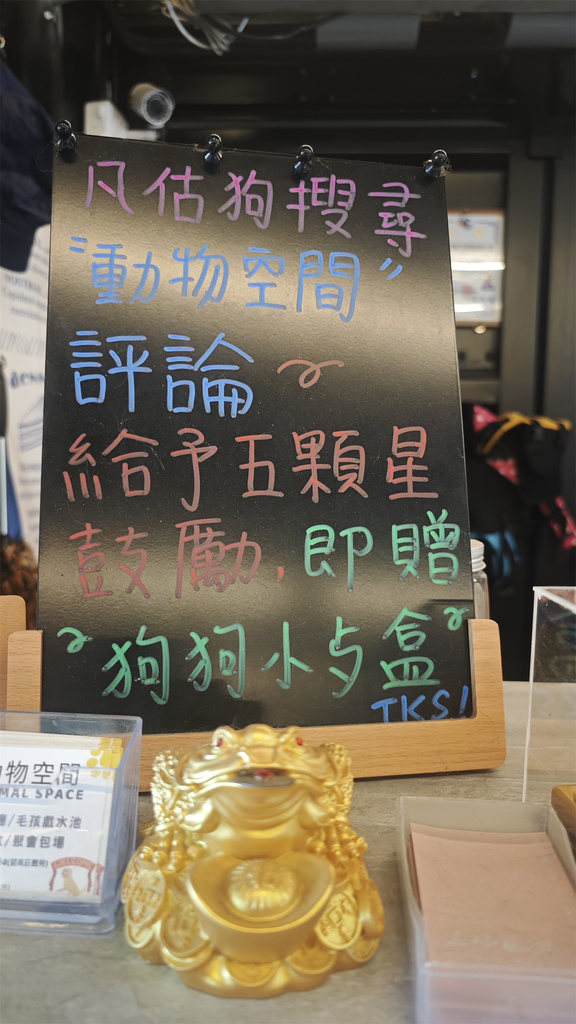 凡估狗搜尋
"動物空間"
評論~
給予五顆星
鼓勵,即贈
"狗狗小与盒"
TKS!
物空間
MAL SPACE
/毛孩戲水池
/聚會包場
WELCOME